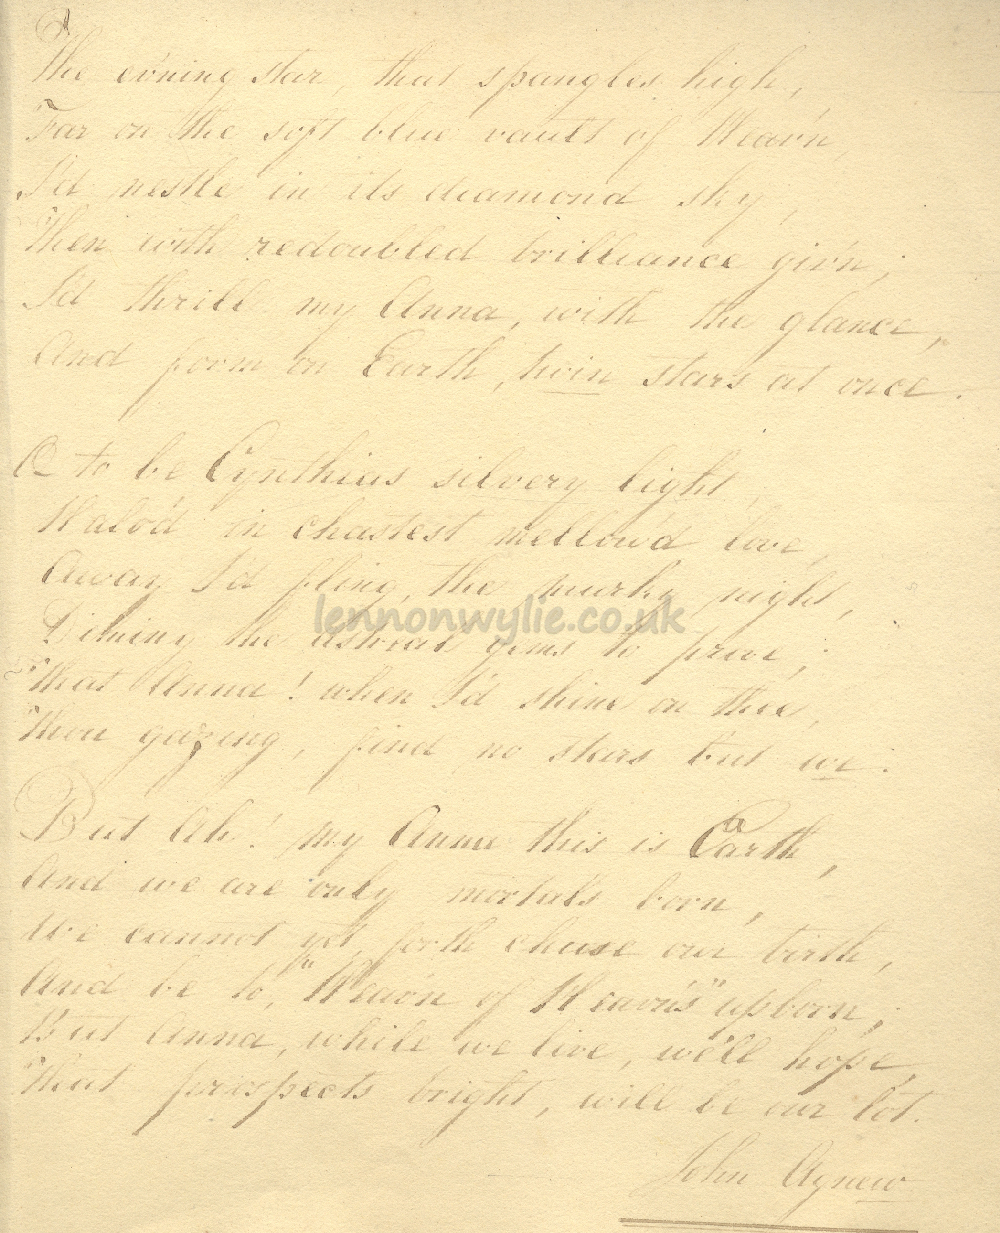 The ev'ning star, that spangles high,
Far on the soft blue vault of Heav'n,
I'd nestle in its diamond sky,
Then with redoubled brilliance giv'n;
I'd thrill my Anna, with the glance,
And form on Earth, twin stars at once.
O to be Cynthias silvery light
Halo'd in chastest mellow'd love,
Away I'd fling, the murky night,
Diming the astreal gems to prove;
That Anna! when I'd shine on thee,
Thou gazing, find no stars but we.
But Ah! my Anna this is Earth,
And we are only mortals born,
We cannot yet, forth chuse our birth,
And be to, "Heav'n of Heav'ns" upborn;
But Anna, while we live, we'll hope,
That prospects bright, will be our lot.
John Agnew
lennonwylie.co.uk